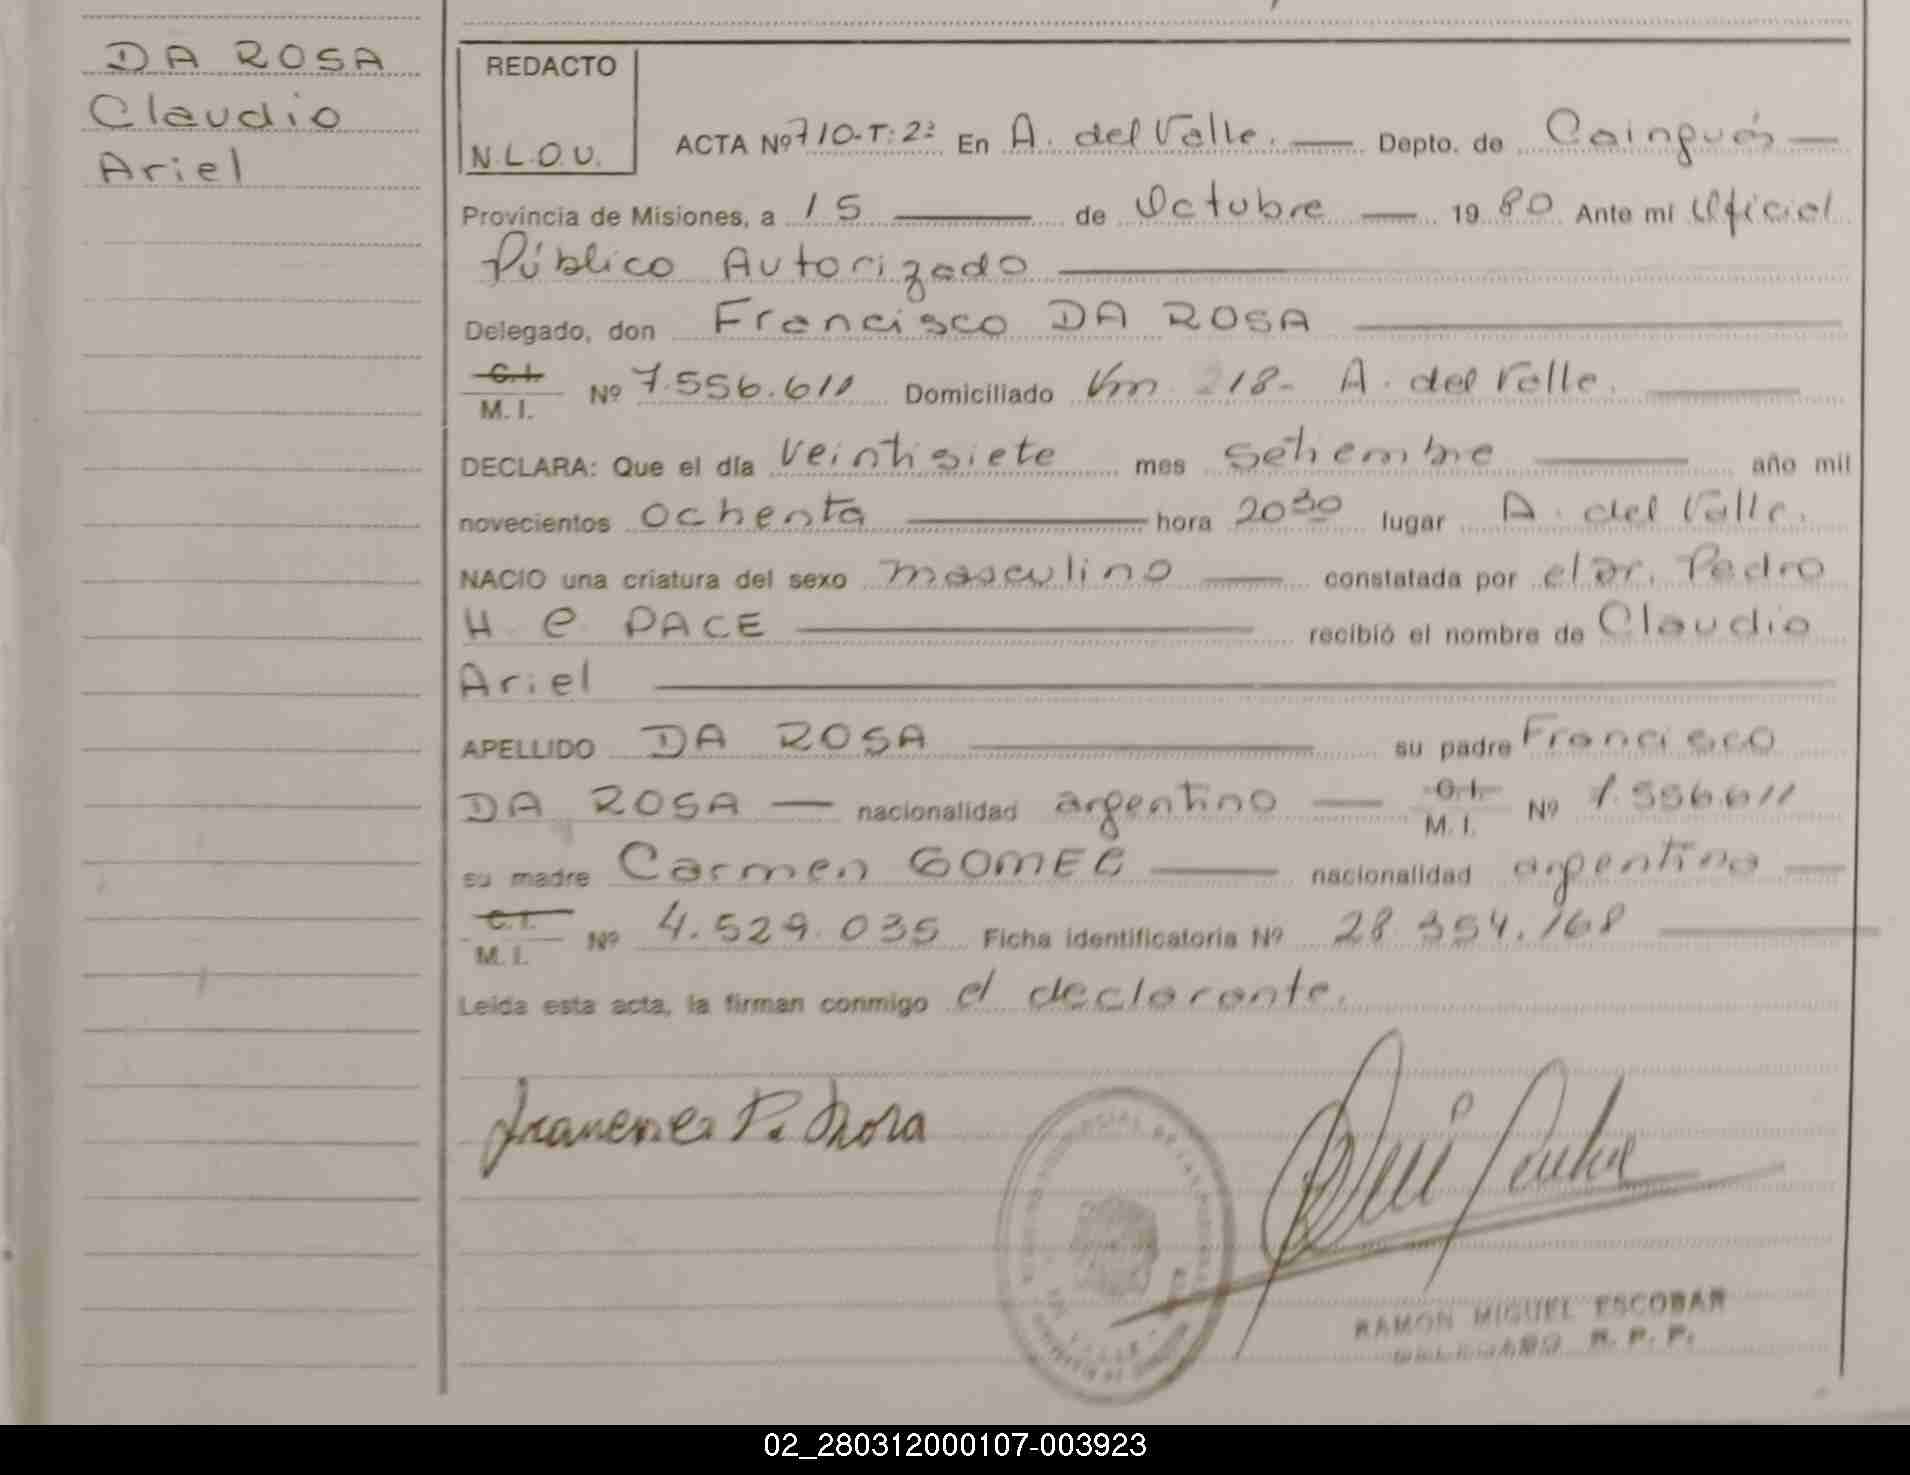 DA ROSA
Claudio
Ariel
REDACTO
N.L.O.U.
ACTA Nº 710-T: 2ª En A. del Valle. — Depto. de Cainguás —
Provincia de Misiones, a 15 — de Octubre — 19 80 Ante mi Oficial
Público Autorizado —
Delegado, don Francisco DA ROSA —
C.I.
M. I. Nº 7.556.611 Domiciliado Km 218- A. del Valle. —
DECLARA: Que el día veintisiete mes setiembre — año mil
novecientos ochenta — hora 20 30 lugar A. del Valle.
NACIO una criatura del sexo masculino — constatada por el dr. Pedro
H. C PACE — recibió el nombre de Claudio
Ariel —
APELLIDO DA ROSA — su padre Francisco
DA ROSA — nacionalidad argentino — C.I.
M. I. Nº 7.556.611
su madre Carmen GOMEG — nacionalidad argentina —
C.I.
M. I. Nº 4.529.035 Ficha identificatoria Nº 28 354.168 —
Leída esta acta, la firman conmigo el declarante.
RAMON MIGUEL ESCOBAR
DELEGADO R. P. P.
02_280312000107-003923